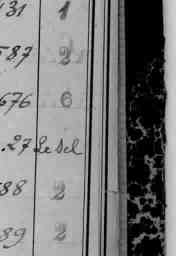 31 1
587 2
676 6
.27 Le Sel
88 2
89 2